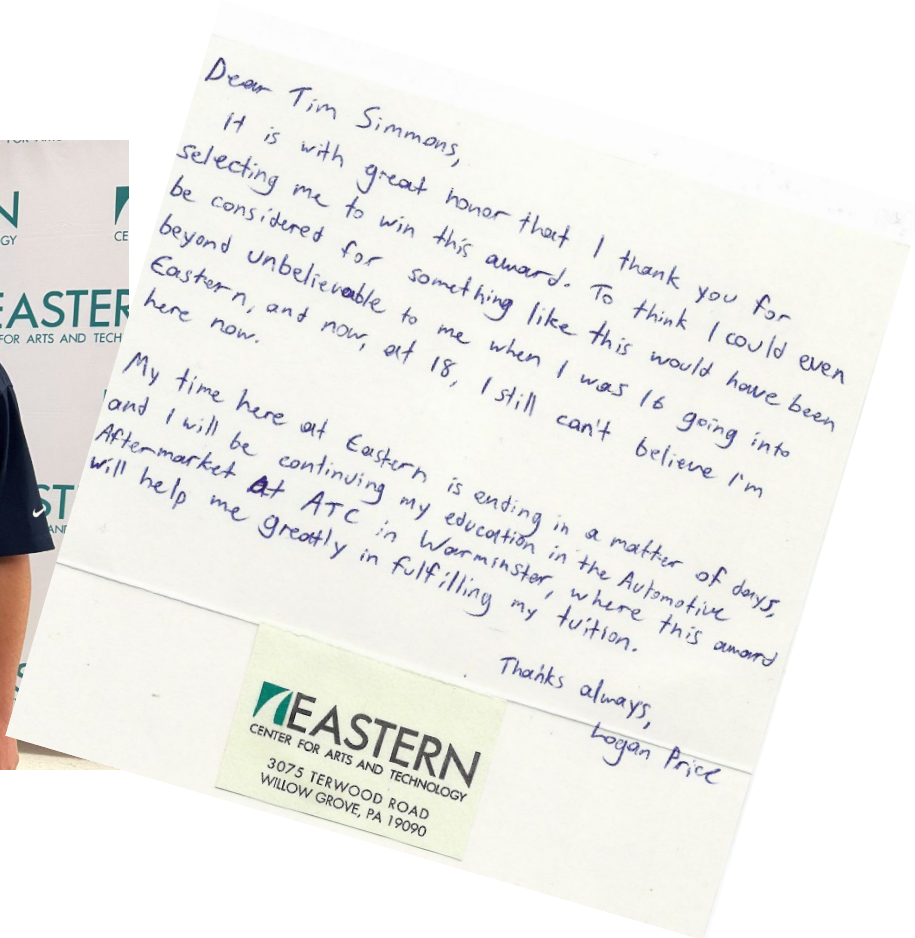 FOR ARTS
N
GY
CE
EASTER
FOR ARTS AND TECH
ST
AND
Dear Tim Simmons,
It is with great honor that I thank you for
selecting me to win this award. To think I could even
be considered for something like this would have been
beyond unbelievable to me when I was 16 going into
Eastern, and now, at 18, I still can't believe I'm
here now.
My time here at Eastern is ending in a matter of days,
and I will be continuing my education in the Automotive
Aftermarket at ATC in Warminster, where this award
will help me greatly in fulfilling my tuition.
Thanks always,
Logan Price
EASTERN
CENTER FOR ARTS AND TECHNOLOGY
3075 TERWOOD ROAD
WILLOW GROVE, PA 19090